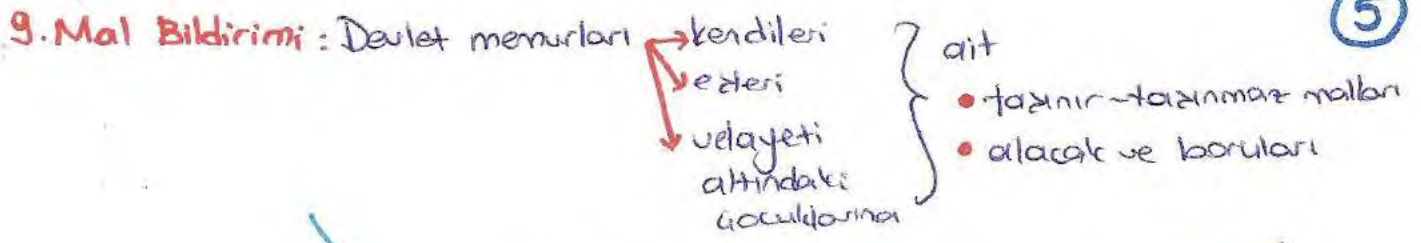 5
9. Mal Bildirimi : Devlet memurları → kendileri
→ eşleri
→ velayeti
altındaki
çocuklarına
ait
• taşınır-taşınmaz malları
• alacak ve borçları